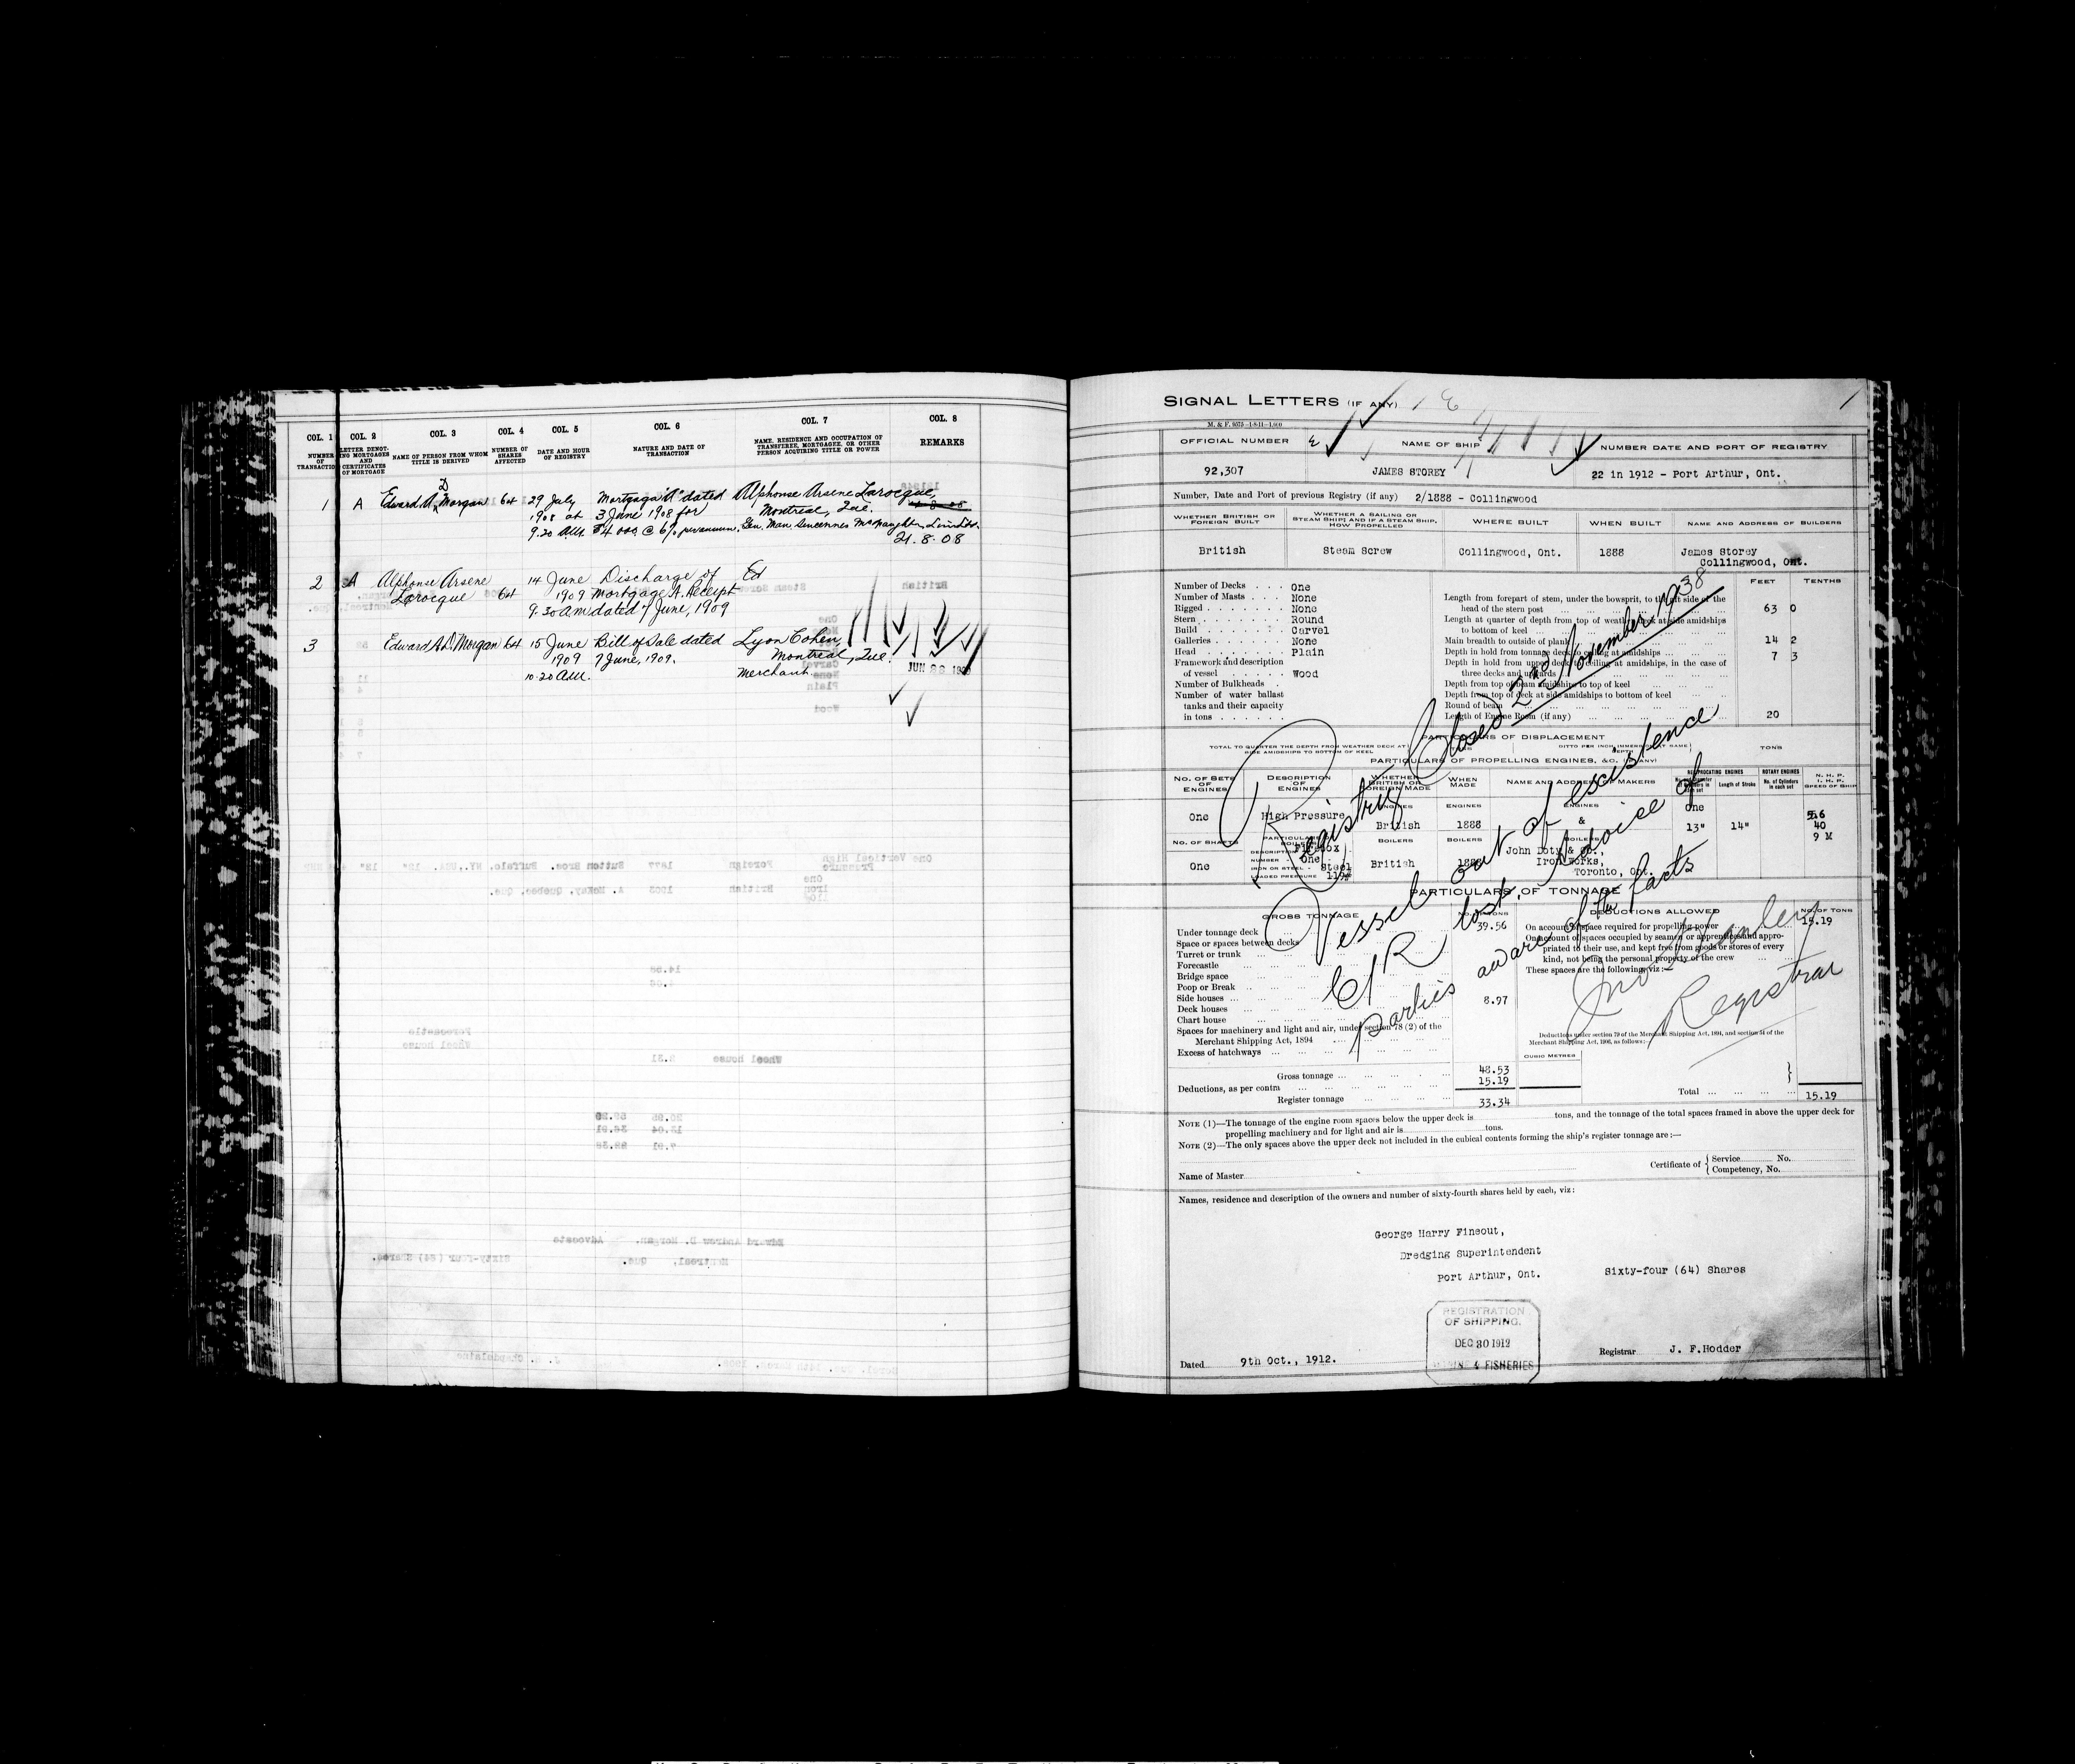 COL. 1 COL. 2 COL. 3 COL. 4 COL. 5 COL. 6 COL. 7 COL. 8
NUMBER OF TRANSACTION
LETTER DENOTING MORTGAGES AND CERTIFICATES OF MORTGAGE
NAME OF PERSON FROM WHOM TITLE IS DERIVED
NUMBER OF SHARES AFFECTED
DATE AND HOUR OF REGISTRY
NATURE AND DATE OF TRANSACTION
NAME, RESIDENCE AND OCCUPATION OF TRANSFEREE, MORTGAGEE, OR OTHER PERSON ACQUIRING TITLE OR POWER
REMARKS
D
1 A Edward A. Morgan 64 29 July Mortgage "A" dated Alphonse Arsene Larocque,
1908 at 3 June 1908 for Montreal, Que.
9.20 A.M. $4000 @ 6% per annum. Gen. Man. Sincennes McNaughton Line Ltd.
21.8.08
2 A Alphonse Arsene 14 June Discharge of Ed
Larocque 64 1909 Mortgage A. Receipt
9.30 AM dated 7 June, 1909
3 Edward A. D. Morgan 64 15 June Bill of Sale dated Lyon Cohen,
1909 7 June, 1909. Montreal, Que.
10.20 A.M. Merchant
SIGNAL LETTERS (IF ANY)
M. & F. 9575-1-8-11-1,000
OFFICIAL NUMBER NAME OF SHIP NUMBER DATE AND PORT OF REGISTRY
92,307 JAMES STOREY 22 in 1912 - Port Arthur, Ont.
Number, Date and Port of previous Registry (if any) 2/1888 - Collingwood
WHETHER BRITISH OR FOREIGN BUILT
WHETHER A SAILING OR STEAM SHIP; AND IF A STEAM SHIP, HOW PROPELLED
WHERE BUILT WHEN BUILT NAME AND ADDRESS OF BUILDERS
British Steam Screw Collingwood, Ont. 1888 James Storey
Collingwood, Ont.
FEET TENTHS
Number of Decks One
Number of Masts None
Rigged None
Stern Round
Build Carvel
Galleries None
Head Plain
Framework and description
of vessel Wood
Number of Bulkheads
Number of water ballast
tanks and their capacity
in tons
Length from forepart of stem, under the bowsprit, to the aft side of the
head of the stern post 63 0
Length at quarter of depth from top of weather deck at side amidships
to bottom of keel
Main breadth to outside of plank 14 2
Depth in hold from tonnage deck to ceiling at amidships 7 3
Depth in hold from upper deck to ceiling at amidships, in the case of
three decks and upwards
Depth from top of beam amidships to top of keel
Depth from top of deck at side amidships to bottom of keel
Round of beam
Length of Engine Room (if any) 20
PARTICULARS OF DISPLACEMENT
TOTAL TO QUARTER THE DEPTH FROM WEATHER DECK AT SIDE AMIDSHIPS TO BOTTOM OF KEEL
DITTO PER INCH IMMERSION AT SAME DEPTH
TONS
PARTICULARS OF PROPELLING ENGINES, &C. (IF ANY)
NO. OF SETS OF ENGINES DESCRIPTION OF ENGINES WHETHER BRITISH OR FOREIGN MADE WHEN MADE NAME AND ADDRESS OF MAKERS
RECIPROCATING ENGINES ROTARY ENGINES
Length of Stroke No. of Cylinders in each set
N. H. P. I. H. P. SPEED OF SHIP
ENGINES ENGINES ENGINES
One High Pressure British 1888 & One 13" 14"
40
9 M
NO. OF SHAFTS BOILERS BOILERS BOILERS
John Doty & Co.,
One British 1888 Iron Works,
Toronto, Ont.
Firebox
NUMBER One
IRON OR STEEL Steel
LOADED PRESSURE
PARTICULARS OF TONNAGE
GROSS TONNAGE NO. OF TONS DEDUCTIONS ALLOWED NO. OF TONS
Under tonnage deck 39.56
Space or spaces between decks
Turret or trunk
Forecastle
Bridge space
Poop or Break
Side houses 8.97
Deck houses
Chart house
Spaces for machinery and light and air, under section 78 (2) of the
Merchant Shipping Act, 1894
Excess of hatchways
On account of space required for propelling power 15.19
On account of spaces occupied by seamen or apprentices and appro-
priated to their use, and kept free from goods or stores of every
kind, not being the personal property of the crew
These spaces are the following, viz:—
Deductions under section 79 of the Merchant Shipping Act, 1894, and section 54 of the
Merchant Shipping Act, 1906, as follows:
CUBIC METRES
Gross tonnage 48.53
Deductions, as per contra 15.19
Register tonnage 33.34
Total 15.19
NOTE (1)—The tonnage of the engine room spaces below the upper deck is tons, and the tonnage of the total spaces framed in above the upper deck for
propelling machinery and for light and air is tons.
NOTE (2)—The only spaces above the upper deck not included in the cubical contents forming the ship's register tonnage are:—
Name of Master Certificate of { Service No.
Competency, No.
Names, residence and description of the owners and number of sixty-fourth shares held by each, viz:
George Harry Fineout,
Dredging Superintendent
Port Arthur, Ont. Sixty-four (64) Shares
REGISTRATION
OF SHIPPING.
DEC 30 1912
& FISHERIES
Dated 9th Oct., 1912. Registrar J. F.Hodder
Registry Closed 2nd November 1938
Vessel out of existence
C/R lost. Advice of
parties aware of the facts
Registrar